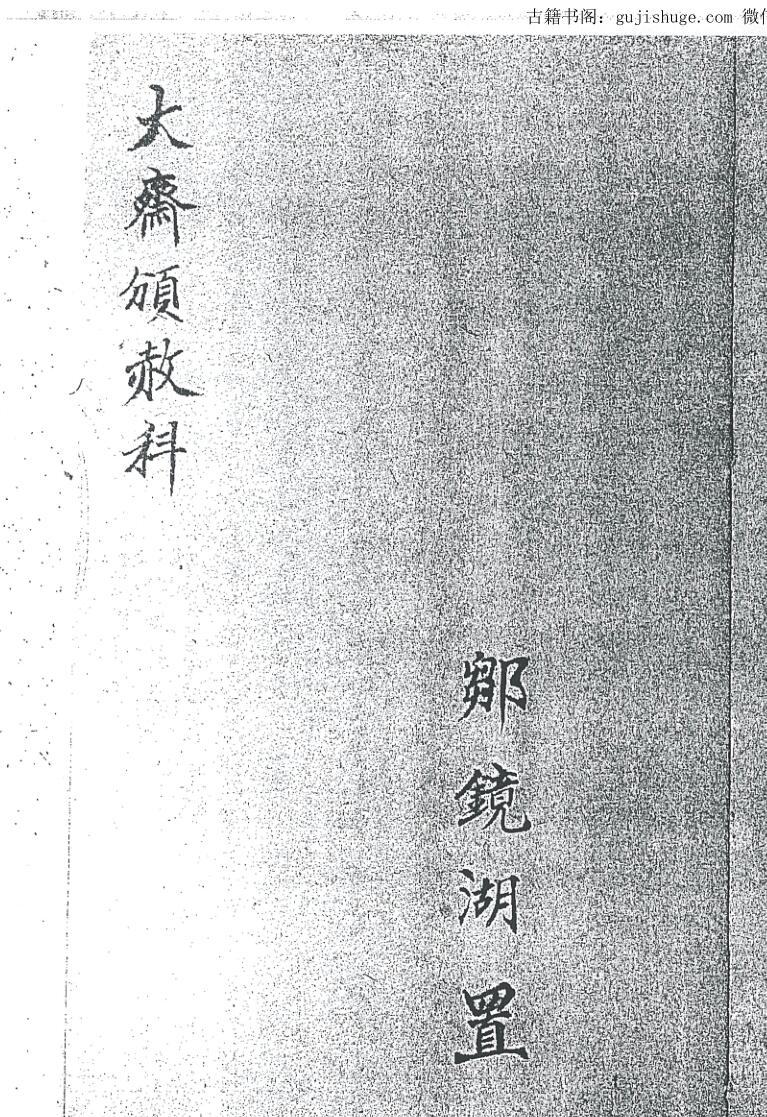 古籍书阁：gujishuge.com 微信
大齋頒赦科
鄒鏡湖置